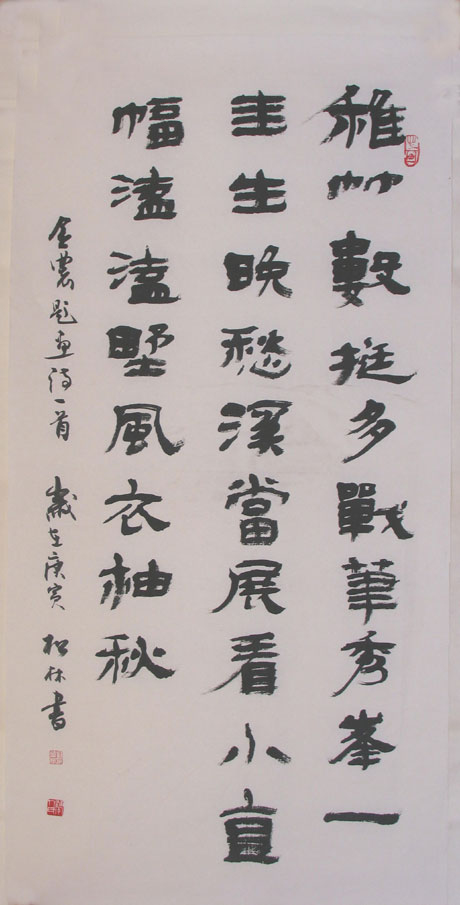 稚竹數挺多戰筆秀峯一
圭生晚愁溪當展看小直
幅溘溘墅風衣袖秋
金農題畫詩一首 歲在庚寅 松林書